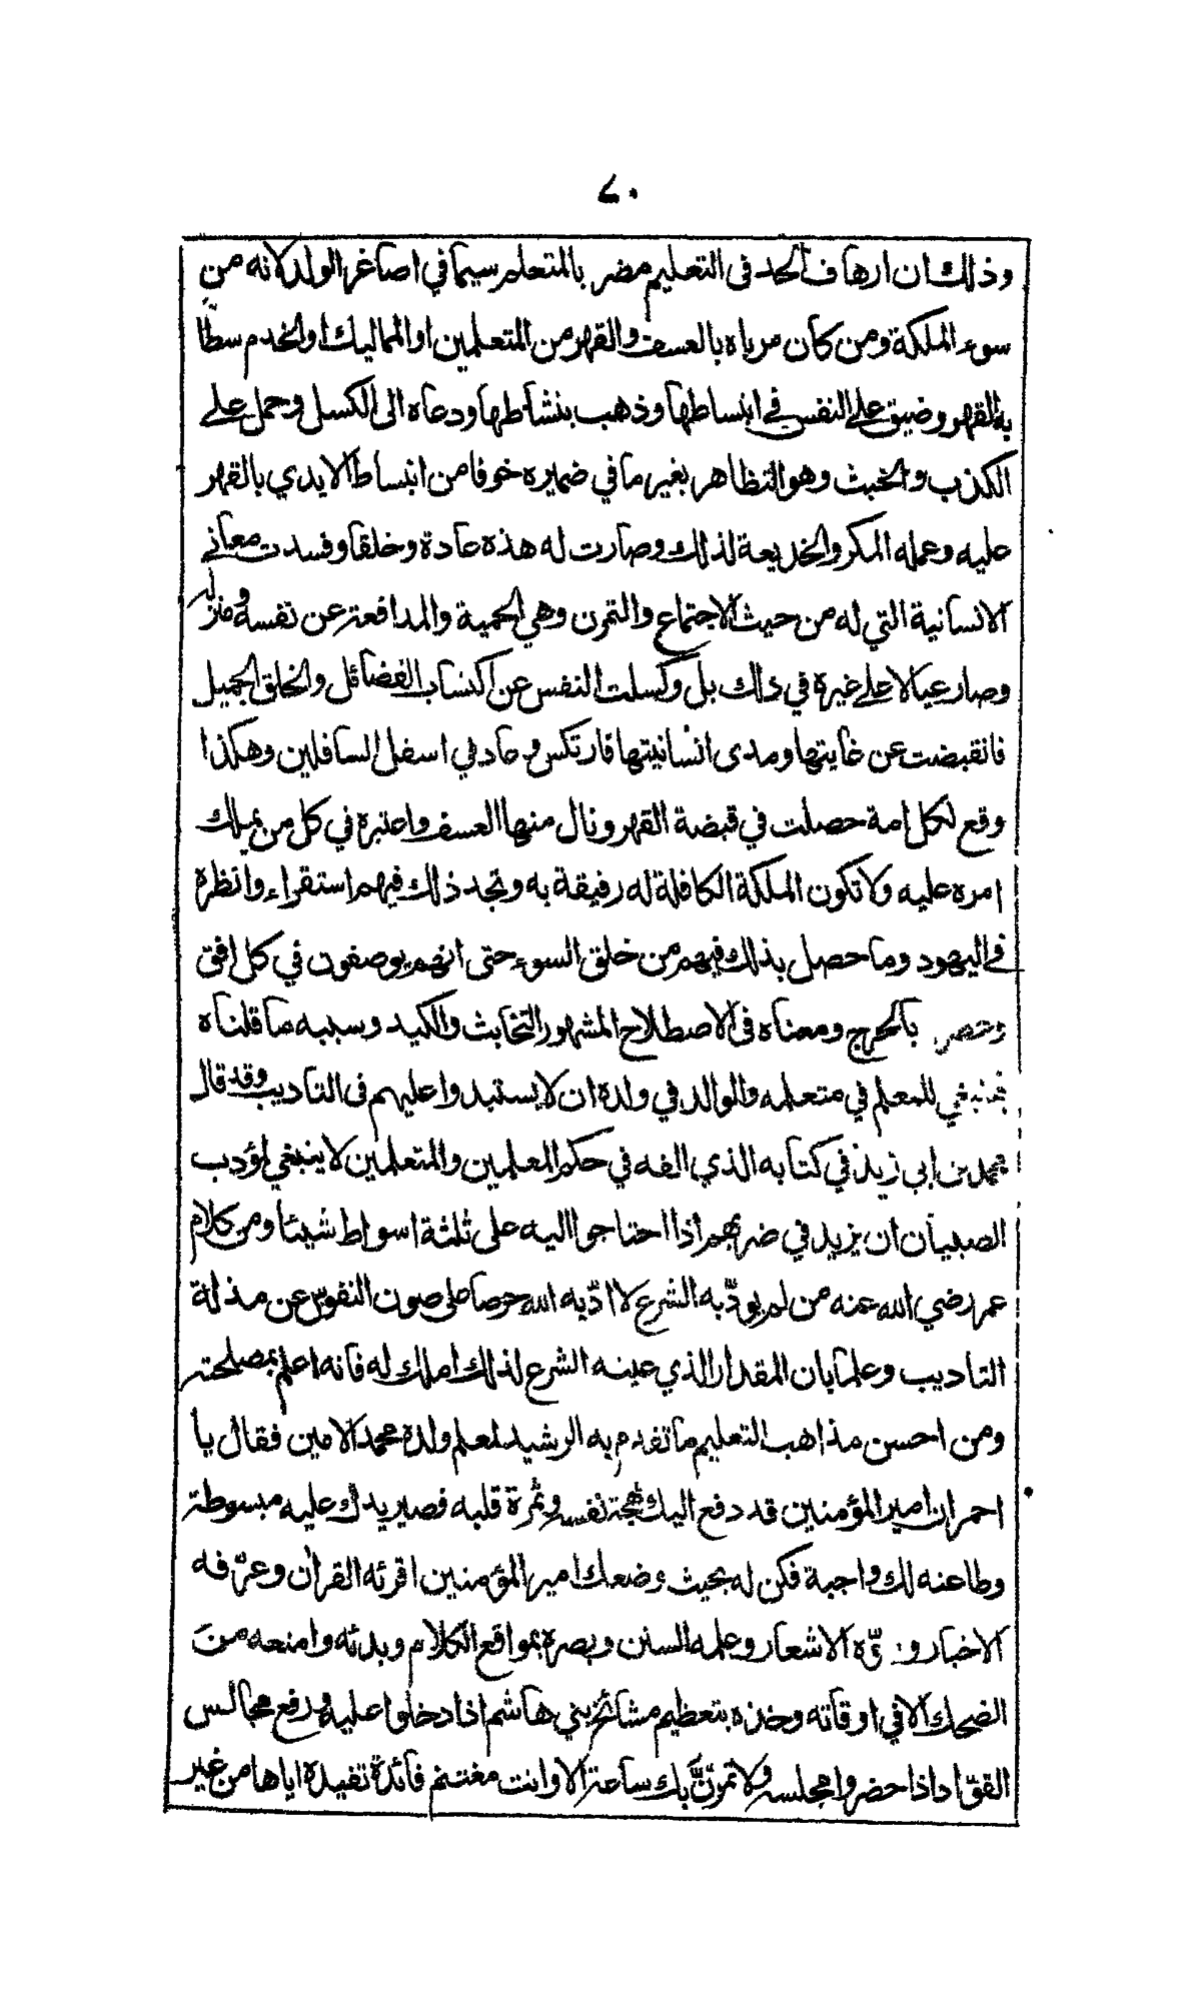 ٧٠
وذلك ان ارهاف الحد فى التعليم مضر بالمتعلم سيما في اصاغر الولد لانه من
سوء الملكة ومن كان مرباه بالعسف والقهر من المتعلمين او المماليك او الخدم سطا
به القهر وضيق على النفس في انبساطها وذهب بنشاطها ودعاه الى الكسل وحمل على
الكذب والخبث وهو التظاهر بغير ما في ضميره خوفا من انبساط الايدي بالقهر
عليه وعمله المكر والخديعة لذلك وصارت له هذه عادة وخلقا وفسدت معاني
الانسانية التي له من حيث الاجتماع والتمرن وهي الحمية والمدافعة عن نفسه ومنزله
وصار عيالا على غيره في ذلك بل وكسلت النفس عن اكتساب الفضائل والخلق الجميل
فانقبضت عن غايتها ومدى انسانيتها فارتكس وعاد في اسفل السافلين وهكذا
وقع لكل امة حصلت في قبضة القهر ونال منها العسف واعتبره في كل من يملك
امره عليه ولا تكون الملكة الكافلة له رفيقة به وتجد ذلك فيهم استقراء وانظره
في اليهود وما حصل بذلك فيهم من خلق السوء حتى انهم يوصفون في كل افق
وعصر بالحرج ومعناه فى الاصطلاح المشهور التخابث والكيد وسببه ما قلناه
فينبغي للمعلم في متعلمه والوالد في ولده ان لا يستبدوا عليهم فى التاديب وقد قال
محمد بن ابي زيد في كتابه الذي الفه في حكم المعلمين والمتعلمين لا ينبغي لمؤدب
الصبيان ان يزيد في ضربهم اذا احتاجوا اليه على ثلثة اسواط شيئا ومن كلام
عمر رضي الله عنه من لم يودّبه الشرع لا ادّبه الله حرصا على صون النفوس عن مذلة
التاديب وعلما بان المقدار الذي عينه الشرع لذلك املك له فانه اعلم بمصلحته
ومن احسن مذاهب التعليم ما تقدم به الرشيد لمعلم ولده محمد الامين فقال يا
احمر ان امير المؤمنين قد دفع اليك مهجة نفسه وثمرة قلبه فصير يدك عليه مبسوطة
وطاعته لك واجبة فكن له بحيث وضعك امير المؤمنين اقرئه القران وعرّفه
الاخبار و الاشعار وعلمه السنن وبصره بمواقع الكلام وبدئه وامنعه من
الضحك الا في اوقاته وخذه بتعظيم مشائخ بني هاشم اذا دخلوا عليه ورفع مجالس
القوّاد اذا حضروا مجلسه ولا تمرّنّ بك ساعة الا وانت مغتنم فائدة تفيده اياها من غير